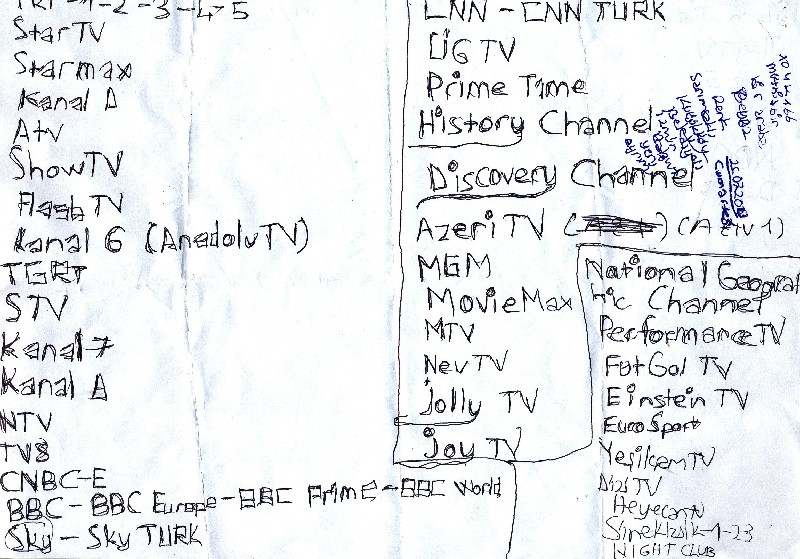 TRT-1-2-3-4-5
Star TV
Starmax
Kanal D
Atv
Show TV
Flash TV
Kanal 6 (Anadolu TV)
TGRT
STV
Kanal 7
Kanal A
NTV
TV8
CNBC-E
BBC - BBC Europe - BBC Prime - BBC World
Sky - Sky TURK
CNN - CNN TURK
TV
Prime Time
History Channel
Discovery Channel
Azeri TV
MGM
MovieMax
MTV
Nev TV
Jolly TV
Joy TV
National Geograf
hic Channel
Performance TV
FutGol TV
Einstein TV
EuroSport
YeşilçamTV
Dizi TV
Heyecan
1-23
NIGHT CLUB